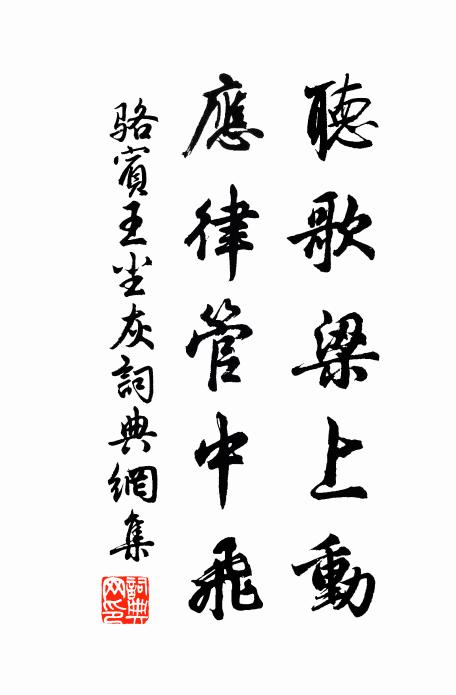 聽歌梁上動
應律管中飛
駱賓王塵灰詞典網集
詞典網印